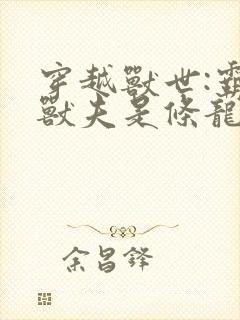 穿越獸世:霸
獸夫是條龍
余昌鋒